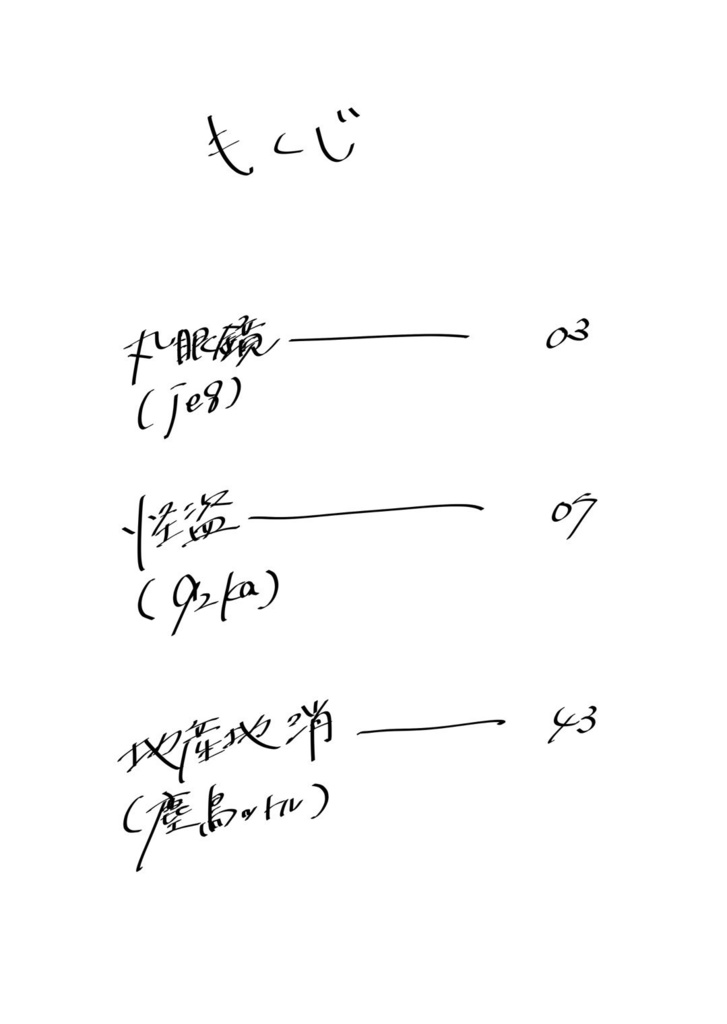 もくじ
丸眼鏡 ――― 03
(jeg)
怪盗 ――― 07
(g2ka)
地産地消 ――― 43
(塵鳥ットル)